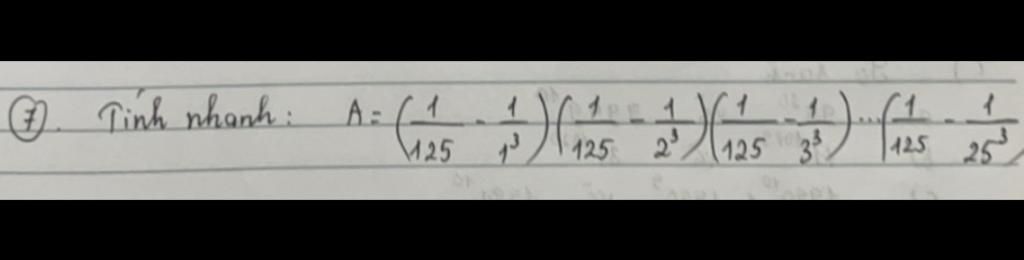 7. Tính nhanh: A = (1/125 - 1/1³)(1/125 - 1/2³)(1/125 - 1/3³)...(1/125 - 1/25³)